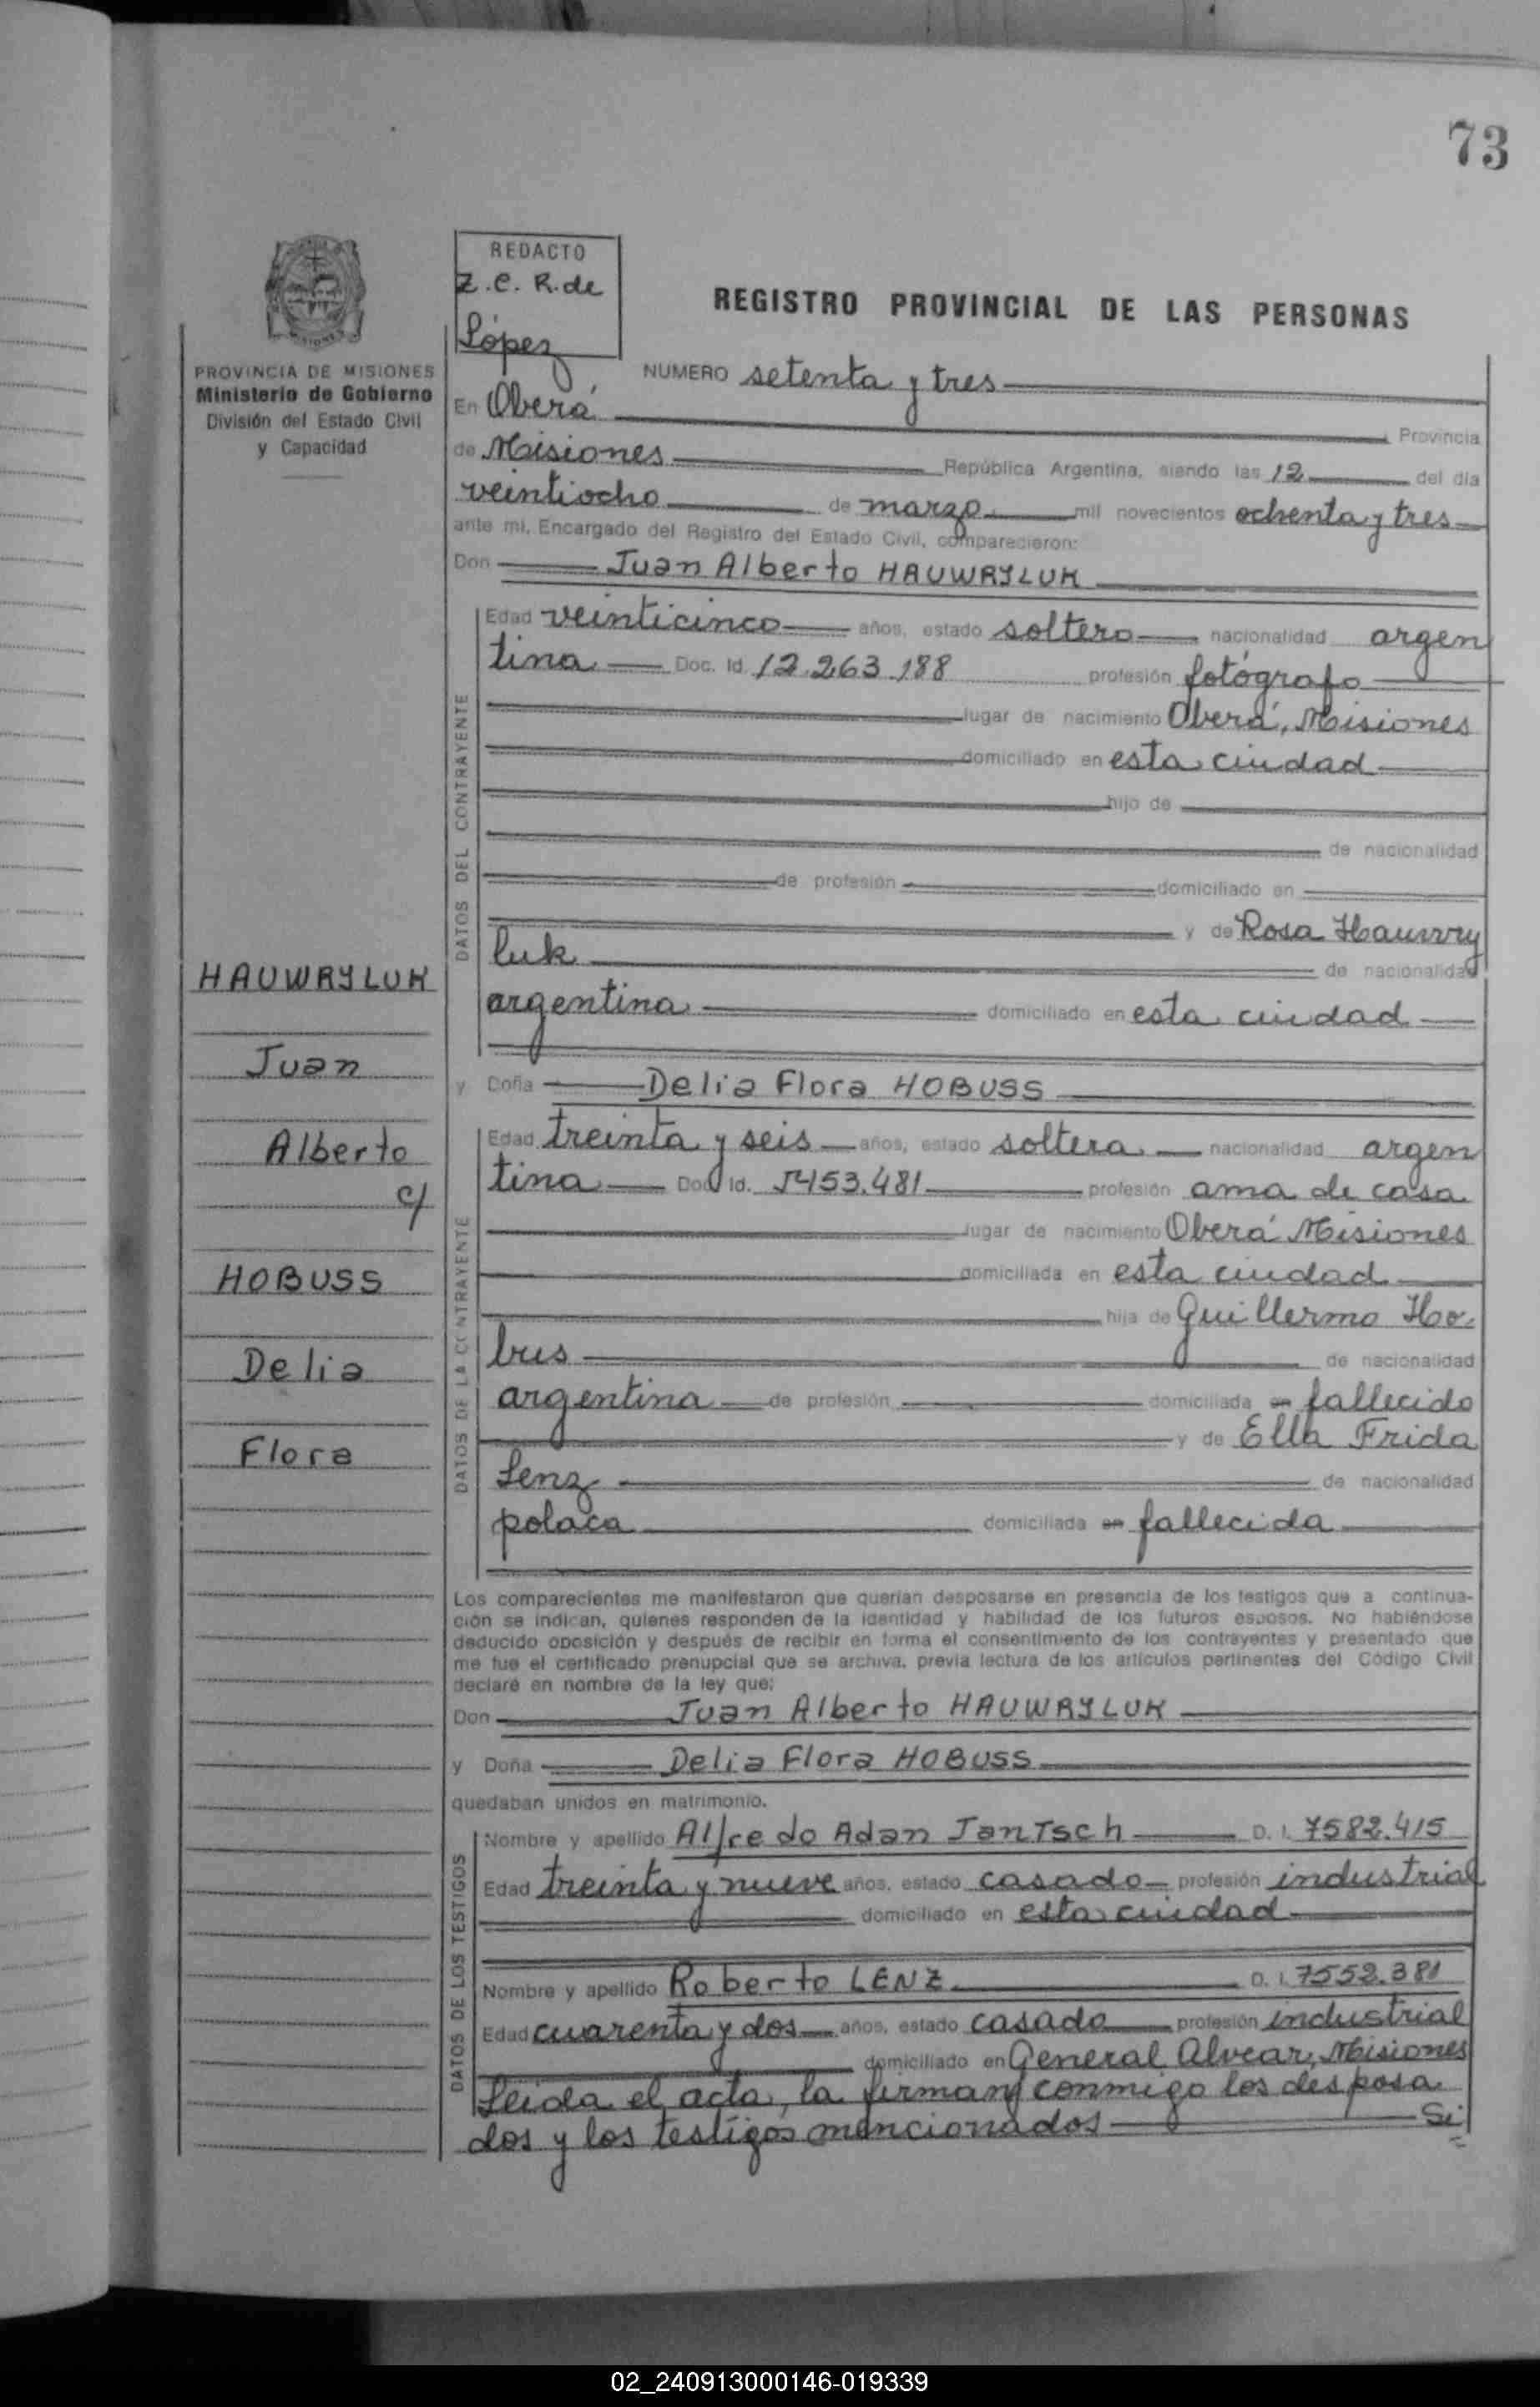 73
REDACTO
Z. C. R. de
López
REGISTRO PROVINCIAL DE LAS PERSONAS
PROVINCIA DE MISIONES
Ministerio de Gobierno
División del Estado Civil
y Capacidad
NUMERO setenta y tres
En Oberá Provincia
de Misiones República Argentina, siendo las 12 del día
veintiocho de marzo mil novecientos ochenta y tres
ante mí, Encargado del Registro del Estado Civil, comparecieron:
Don Juan Alberto HAUWRYLUK
DATOS DEL CONTRAYENTE
Edad veinticinco años, estado soltero nacionalidad argen
tina Doc. Id. 12.263.188 profesión fotógrafo
lugar de nacimiento Oberá, Misiones
domiciliado en esta ciudad
hijo de
de nacionalidad
de profesión domiciliado en
y de Rosa Hauwry
luk de nacionalidad
argentina domiciliado en esta ciudad
HAUWRYLUK
Juan
Alberto
c/
HOBUSS
Delia
Flora
y Doña Delia Flora HOBUSS
DATOS DE LA CONTRAYENTE
Edad treinta y seis años, estado soltera nacionalidad argen
tina Doc. Id. 5453.481 profesión ama de casa
lugar de nacimiento Oberá Misiones
domiciliada en esta ciudad
hija de Guillermo Ho-
bus de nacionalidad
argentina de profesión domiciliada en fallecido
y de Ella Frida
Lenz de nacionalidad
polaca domiciliada en fallecida
Los comparecientes me manifestaron que querían desposarse en presencia de los testigos que a continua-
ción se indican, quienes responden de la identidad y habilidad de los futuros esposos. No habiéndose
deducido oposición y después de recibir en forma el consentimiento de los contrayentes y presentado que
me fue el certificado prenupcial que se archiva, previa lectura de los artículos pertinentes del Código Civil
declaré en nombre de la ley que:
Don Juan Alberto HAUWRYLUK
y Doña Delia Flora HOBUSS
quedaban unidos en matrimonio.
DATOS DE LOS TESTIGOS
Nombre y apellido Alfredo Adan JanTsch D. I. 7582.415
Edad treinta y nueve años, estado casado profesión industrial
domiciliado en esta ciudad
Nombre y apellido Roberto LENZ D. I. 7552.381
Edad cuarenta y dos años, estado casado profesión industrial
domiciliado en General Alvear, Misiones
Leida el acta, la firman conmigo los desposa
dos y los testigos mencionados Si
02_240913000146-019339